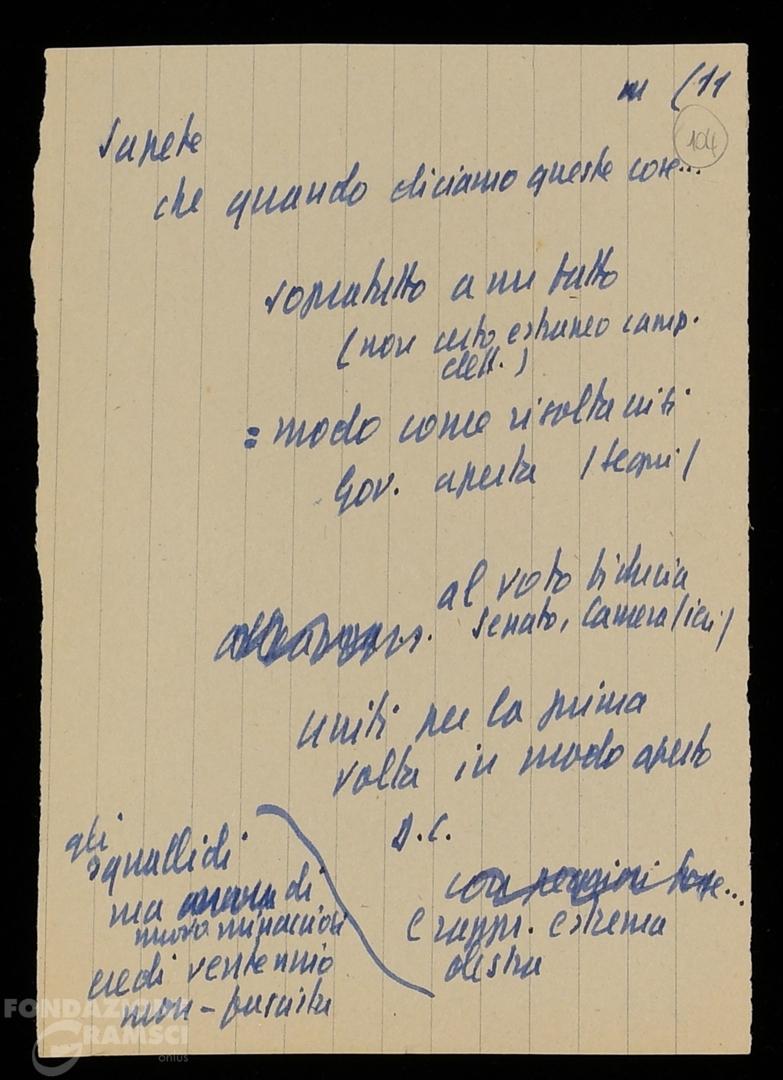 m (11
104
Sapete
che quando diciamo queste cose...
sopratutto a un fatto
(non certo estraneo camp.
elett.)
= modo come risolta crisi
Gov. aperta /segni/
al voto fiducia
Senato, Camera /ieri/
uniti per la prima
volta in modo aperto
D.C.
e rappr. estrema
destra
gli
squallidi
ma di
nuovo minacciosi
eredi ventennio
mon-fascista
FONDAZIONE
GRAMSCI
onlus